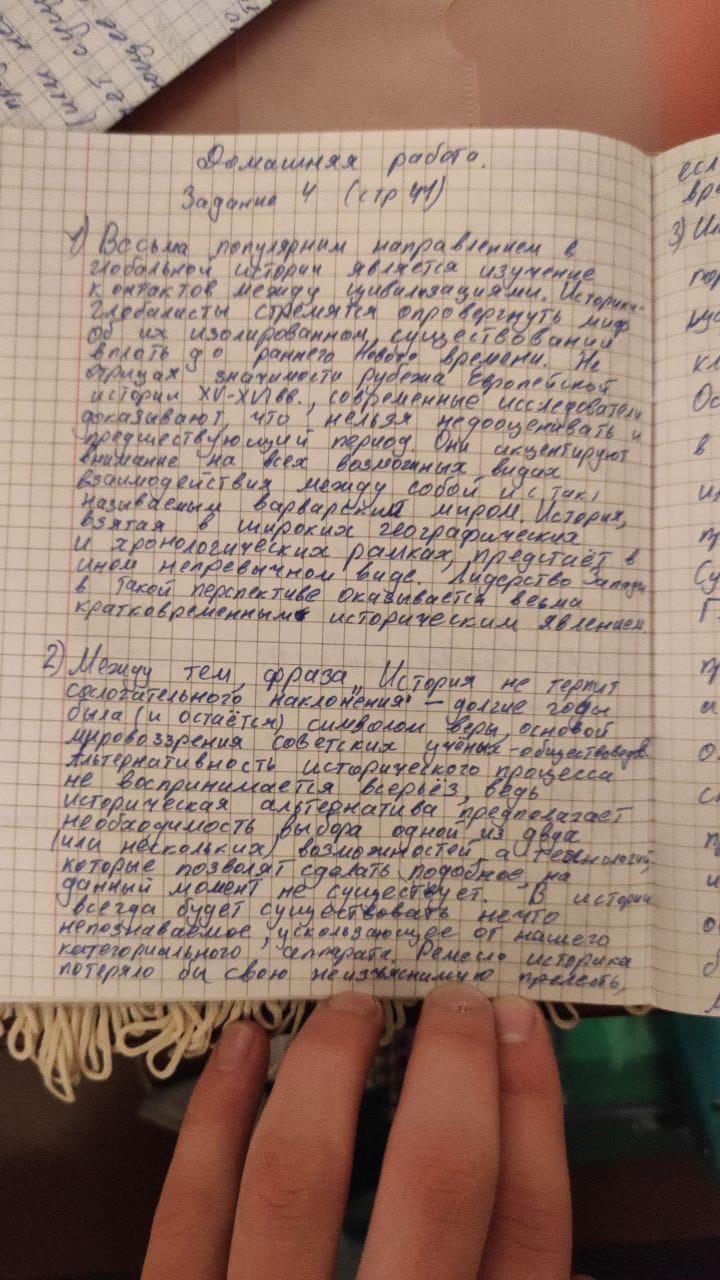 Домашняя работа.
Задание 4 (стр 41)
1) Весьма популярним направлением в
глобальной истории является изучение
контактов между цивилизациями. Историки-
глобалисты стремятся опровергнуть миф
об их изолированном существовании
вплоть до раннего Нового времени. Не
отрицах значимости рубежа Европейской
истории XV-XVI вв., современные исследователи
доказывают, что нельзя недооценивать и
предшествующий период. Они акцентируют
внимание на всех возможных видах
взаимодействия между собой и с так
называемым варварским миром. История,
взятая в широких географических
и хронологических рамках, предстаёт в
ином непревычном виде. Лидерство Запада
в такой перспективе оказывается весьма
кратковременным историческим явлением.
2) Между тем, фраза „История не терпит
сослогательного наклонения" – долгие годы
была (и остаётся) символом веры, основой
мировоззрения советских учёных-обществоведов.
Альтернативность исторического процесса
не воспринимается всерьёз, ведь
историческая альтернатива предполагает
необходимость выбора одной из двух
(или нескольких) возможностей, а технологий,
которые позволят сделать подобное, на
данный момент не существует. В истории
всегда будет существовать нечто
непознаваемое, ускользающее от нашего
категориального аппарата. Ремесло историка
потеряло бы свою неизъяснимую прелесть,
если
вре
3)
в